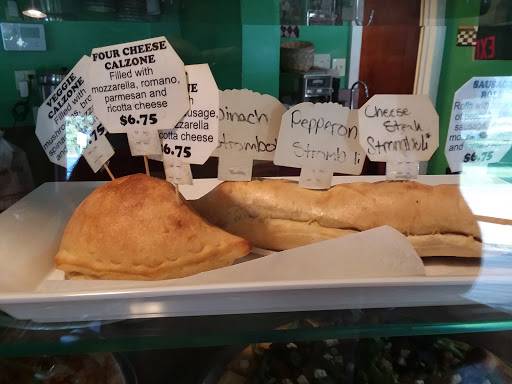 VEGGIE
CALZONE
Filled with
FOUR CHEESE
CALZONE
Filled with
mozzarella, romano,
parmesan and
ricotta cheese
$6.75
sausage,
mozzarella
cheese
6.75
Spinach
Stromboli
Pepperoni
Stromboli
Cheese
Steak
Stromboli
SAUSAGE
ROLL
sausage
$6.75